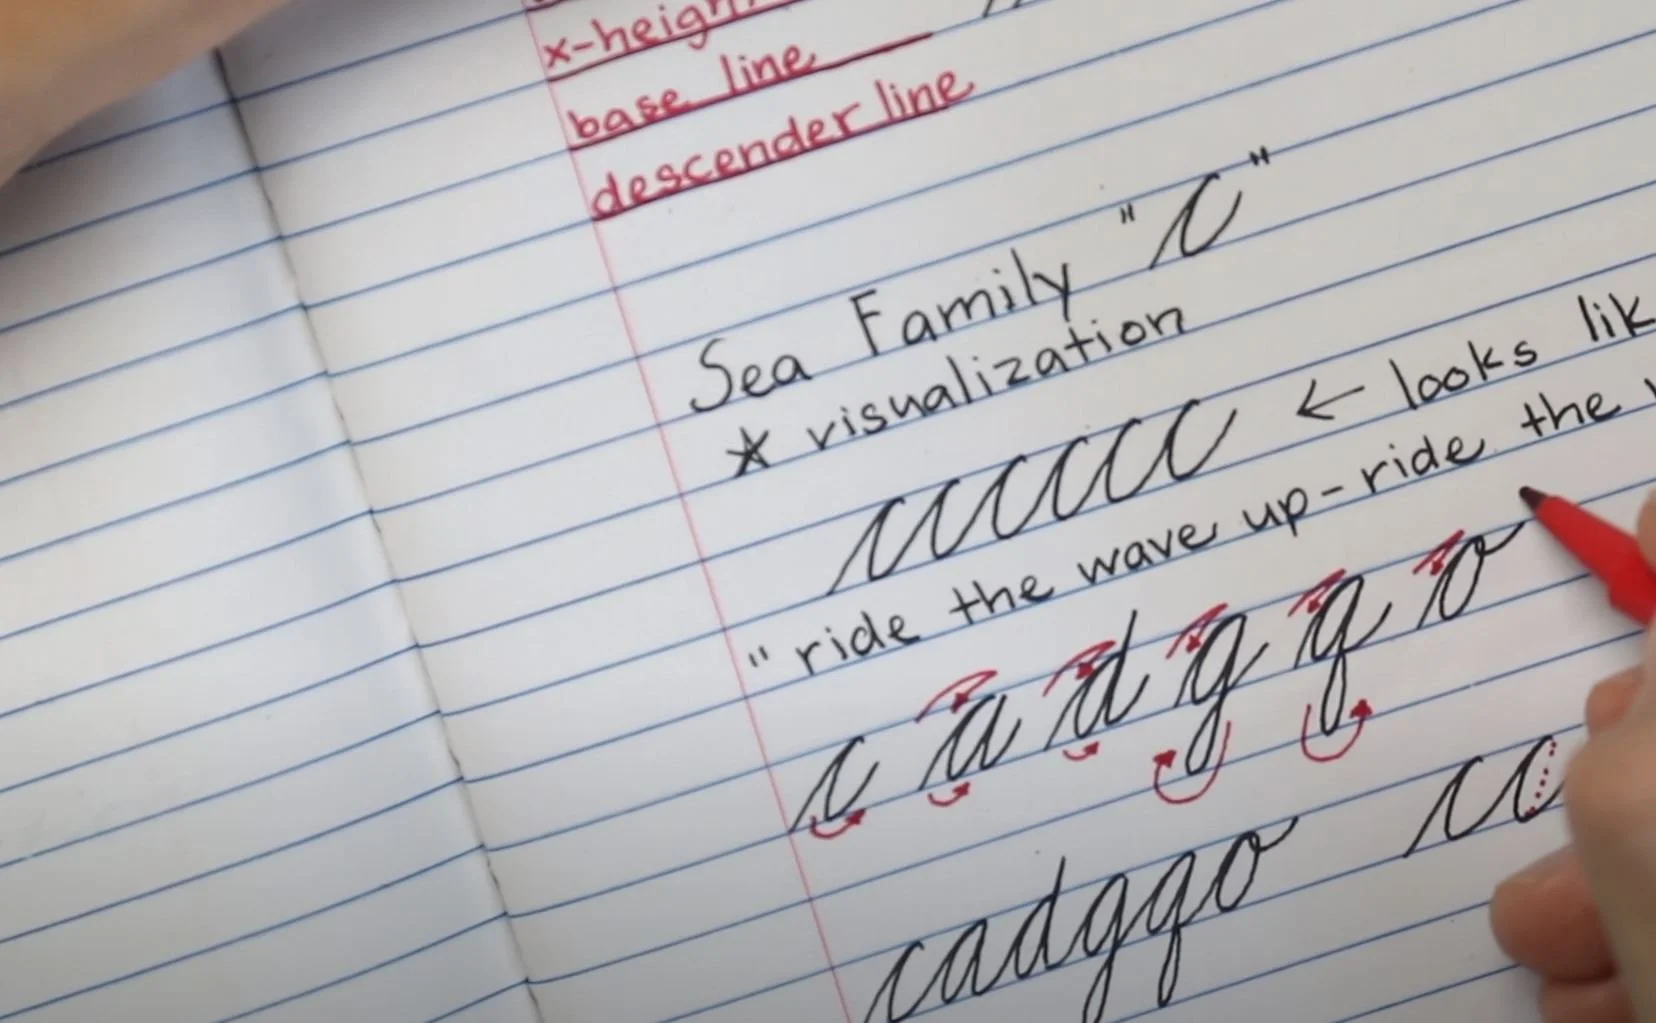 x-heigh
base line
descender line
Sea Family "c"
* visualization
cccccc ← looks lik
"ride the wave up-ride the
c a d g q o
cadgqo cc